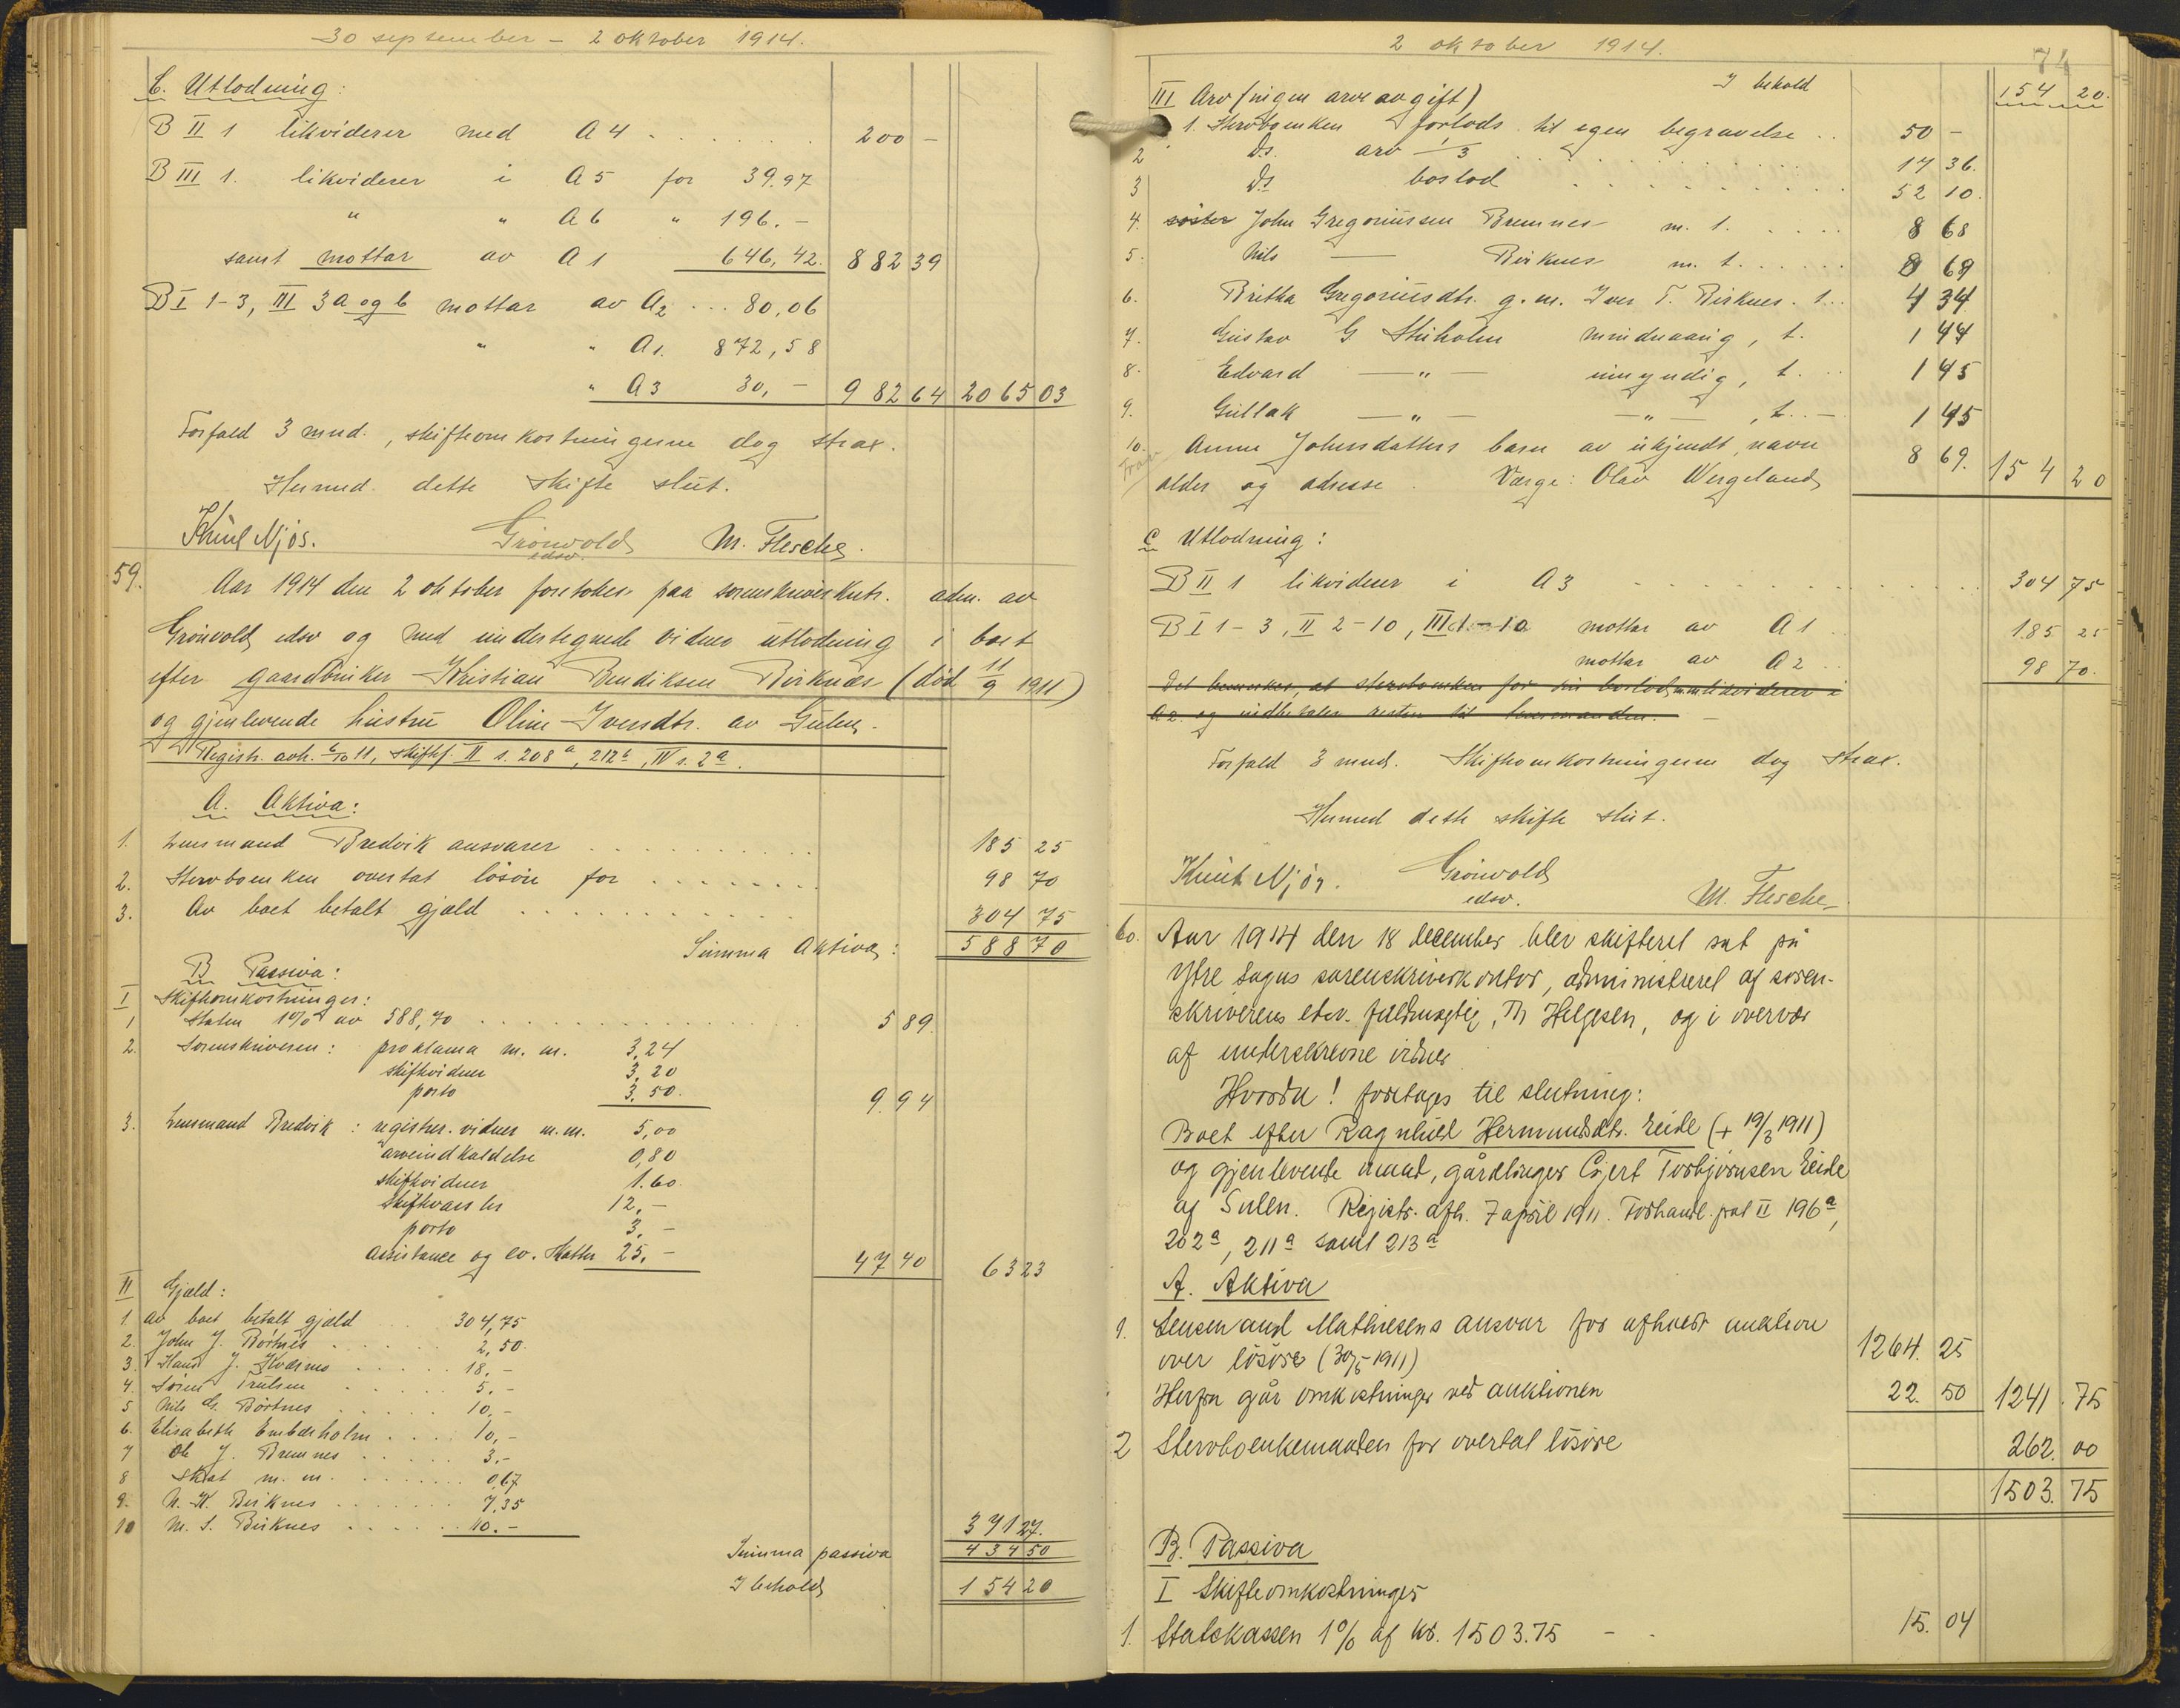 30 september - 2 oktober 1914.
C. Utlodning:
B II 1 likviderer med A 4 . . . . . . 200 -
B III 1. likviderer i A 5 for 39.97
" " A 6 " 196. -
samt mottar av A 1 646,42. 882 39
B I 1-3, III 3a og b mottar av A 2 ... 80,06
" " A 1. 872,58
" A 3 30, - 982 64 2065 03
Forfald 3 mnd., skifteomkostningerne dog strax.
Hermed dette skifte slut.
Knut Njøs. Grönvold M. Flesche.
edsv.
59. Aar 1914 den 2 oktober foretokes paa sorenskriverkntr. adm. av
Grönvold edsv og med undertegnede vidner utlodning i boet
efter gaardbruker Kristian Bendiksen Birknes (död 11/9 1911)
og gjenlevende hustru Oline Iversdtr. av Gulen.
Registr. avh. 6/10 11, skiftef. II s. 208a, 212b, IV s. 2a.
A. Aktiva:
1. Lensmand Bredvik ansvarer . . . . . . . . . 185 25
2. Stervboenken overtat lösöre for . . . . . . . 98 70
3. Av boet betalt gjæld . . . . . . . . . . 304 75
Summa Aktiva: 588 70
B Passiva:
I Skifteomkostninger:
1 Staten 1% av 588,70 . . . . . . . . . . . 5 89
2. Sorenskriveren: proklama m. m. 3,24
skiftevidner 3,20
porto 3.50. 9.94
3. Lensmand Bredvik: registrer. vidner m.m. 5,00
arveindkaldelse 0,80
skiftevidner 1.60.
Skiftevarsler 12,-
porto 3,-
Assistance og ev. Hatter 25,- 47 40 63 23
II Gjæld:
1. Av boet betalt gjæld . . 304,75
2. John J. Börtnes . . . . . 2,50.
3. Hans J. Kværno . . . . 18,-
4. Sörine Trulsen . . . . . 5,-
5 Nils G. Börtnes . . . . . 10,-
6. Elisabeth Emberholm . . . . 10,-
7 Ole J. Bremnes . . . . . 3,-
8 Skat m. m. . . . . . . 0,67
9. N. K. Birknes . . . . . . 7,35
10 M. S. Birknes . . . . . . 10.- 371 27.
Summa passiva 434 50
I behold 154 20
2 oktober 1914. 74
I behold 154 20.
III Arv (ingen arveavgift)
1. Stervboenken forlods til egen begravelse .. 50 -
2 Ds. arv 1/3 . . . . . . . . . . 17 36.
3 Ds boslod . . . . . . . . . . 52 10.
4. söster John Gregoriussen Bremnes m. 1. . . . . 8 68
5. Nils — Birknes m. 1. . . . . . 8 69
6. Britha Gregoriusdtr. g.m. Iver T. Birknes. 1... 4 34
7. Gustav G Stuholm mindreaarig, 1. 1 44
8. Edvard — " — umyndig, 1. . . 1 45
9. Gullak — " — — " — , 1. . - 1 45
10. Anne Johnsdatters barn av ukjendt navn
alder og adresse. Værge: Olav Wergeland 8 69. 154 20
C Utlodning:
B II 1 likviderer i A 3 . . . . . . . . . . 304 75
B I 1-3, II 2-10, III 1-10 mottar av A 1 .. 185 25
mottar av A 2 .. 98 70.
Det bemerkes, at stervboenken for sin boslod m.m. likviderer i
A 2. og indbetaler resten til lensmanden. -
Forfald 3 mnd. Skifteomkostningerne dog strax.
Hermed dette skifte slut.
Knut Njös. Grönvold
edsv. M. Flesche
60. Aar 1914 den 18 december blev skifteret sat på
Ytre Sogns sorenskriverkontor, administreret af soren-
skriverens edsv. fuldmægtig, Th Helgesen, og i overvær
af underskrevne vidner
Hvorda! foretages til slutning:
Boet efter Ragnhild Hermundsdtr. Eide (+ 19/3 1911)
og gjenlevende mand, gårdbruger Gjert Torbjörnsen Eide
af Sulen. Registr. afh. 7 april 1911. Forhandl. prot II 196a,
202a, 211a samt 213a
A. Aktiva
1. Lensmand Mathiesens ansvar for afholdt auktion
over lösöre (30/5-1911) 1264. 25
Herfra går omkostninger ved auktionen 22. 50 1241. 75
2 Stervboenkemanden for overtat lösöre 262. 00
1503. 75
B. Passiva
I Skifteomkostninger
1. Statskassen 1% af kr. 1503.75 - - 15. 04